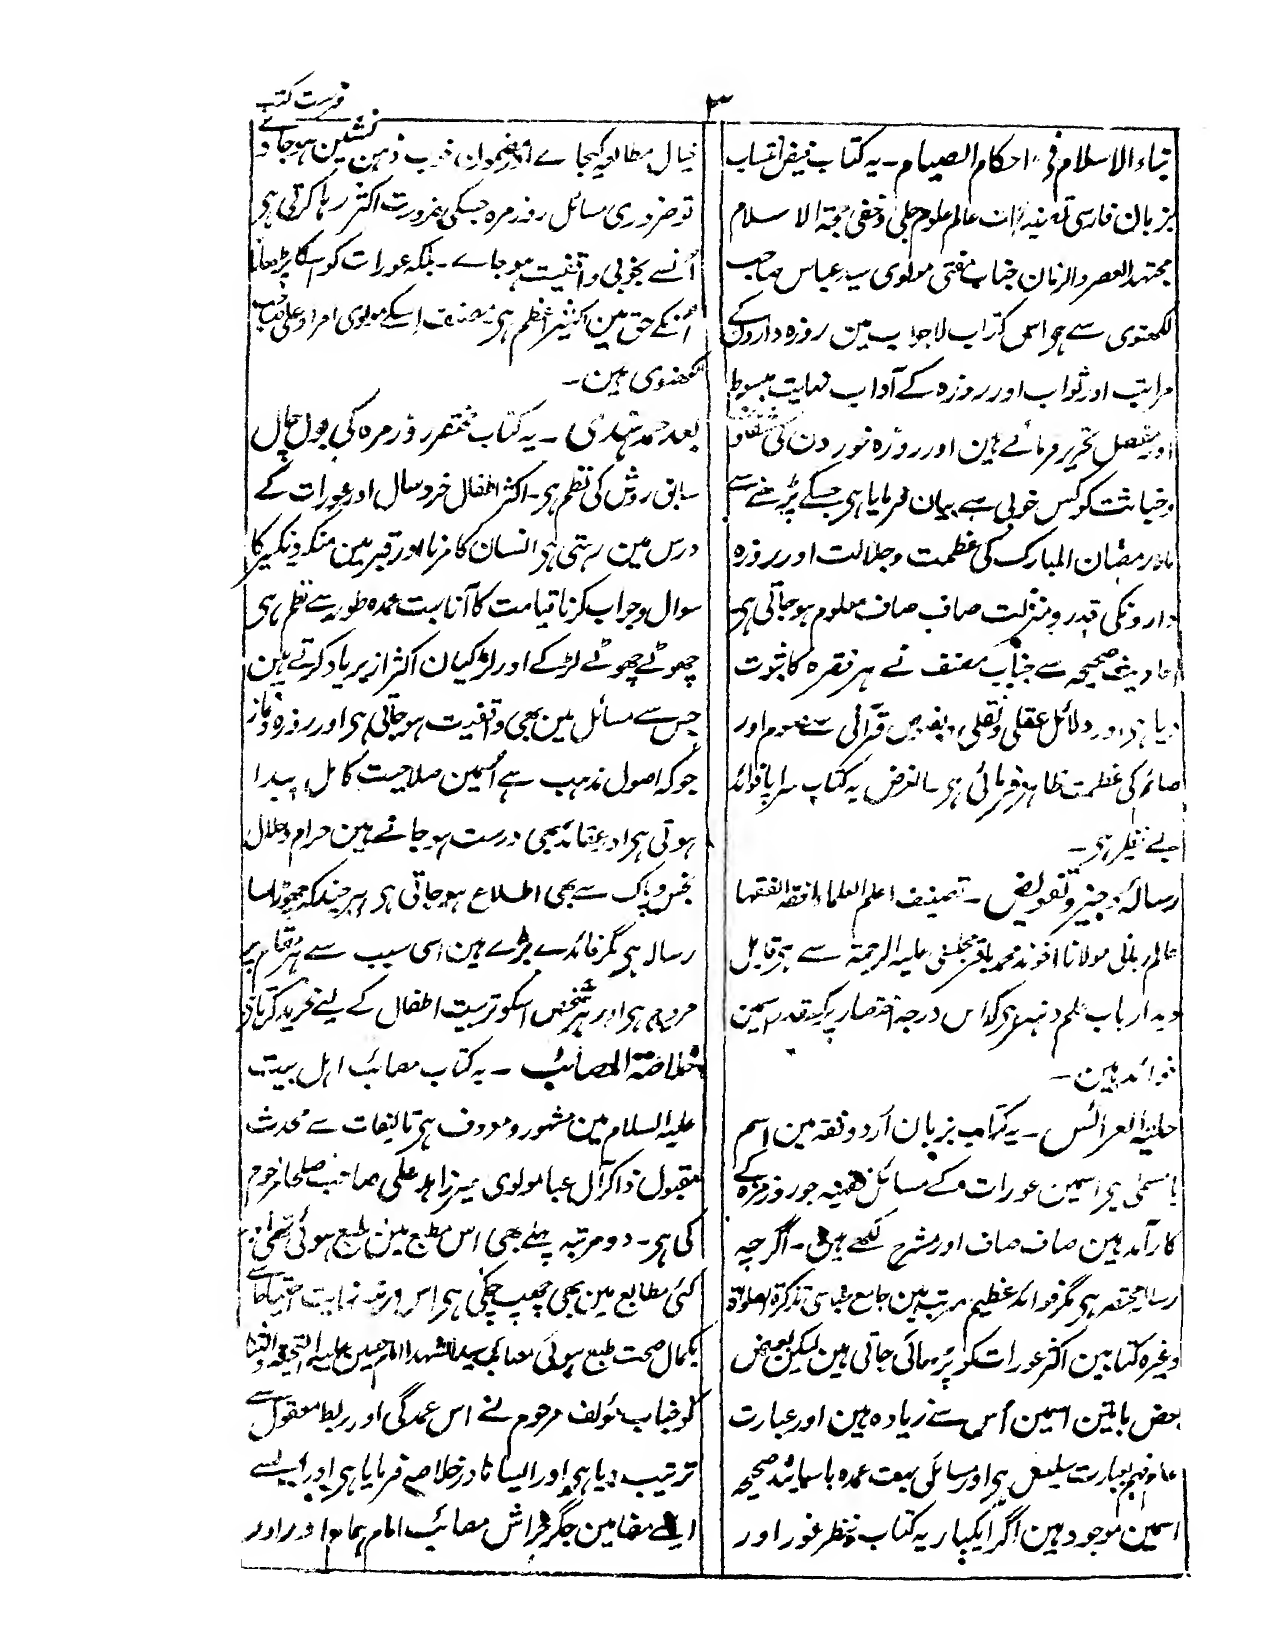 ۳
فہرست کتب
بناء الاسلام فی احکام الصیام۔ یہ کتاب فیض انتساب
بزبان فارسی تصنیفات عالم علوم جلی وخفی حجۃ الاسلام
مجتہد العصر والزمان جناب مفتی مولوی سید عباس صاحب
لکھنوی سے ہے اس کتاب لاجواب مین روزہ دارون کے
مراتب اور ثواب اور روزہ کے آداب نہایت مبسوط
اور مفصل تحریر فرمائے ہین اور روزہ خوردن کی شقاوت
وخباثت کو کس خوبی سے بیان فرمایا ہی جسکے پڑہنے سے
ماہ رمضان المبارک کی عظمت وجلالت اور روزہ
دارونکی قدر و منزلت صاف صاف معلوم ہوجاتی ہی
احادیث صحیحہ سے جناب مصنف نے ہر فقرہ کا ثبوت
دیا ہی اور دلائل عقلی ونقلی و بنصوص قرآنی سے صوم اور
صائم کی عظمت ظاہر فرمائی ہی۔ الغرض یہ کتاب سراپا فوائد
بے نظیر ہی۔
رسالہ وجیز و تفویض۔ تصنیف اعلم العلما وافقہ الفقہا
عالم ربانی مولانا اخوند محمد باقر مجلسی علیہ الرحمۃ سے ہی قابل
دید ارباب علم و ہنر ہی کہ اس درجہ اختصار پر کسقدر اسمین
فوائد ہین۔
حلیۃ العرائس۔ یہ کتاب بزبان اُردو فقہ مین اسم
با مسمیٰ ہی اسمین عورات کے مسائل فقہیہ جو روزمرہ کے
کارآمد ہین صاف صاف اور مشرح لکھے ہین۔ اگرچہ
رسالہ مختصر ہی مگر فوائد عظیم مرتب ہین جامع عباسی تذکرۃ الصلوۃ
وغیرہ کتابین اکثر عورات کو پڑہائی جاتی ہین لیکن بعض
بعض باتین اسمین اُس سے زیادہ ہین اور عبارت
عام فہم بعبارت سلیس ہی اور مسائل بہت عمدہ با سانید صحیحہ
اسمین موجود ہین اگر ایکبار یہ کتاب بنظر غور اور
خیال مطالعہ کیجاے اور مضمون خوب ذہن نشین ہوجاے
تو ضروری مسائل روزمرہ جسکی ضرورت اکثر رہا کرتی ہی
اُنسے بخوبی واقفیت ہوجاے۔ بلکہ عورات کو اسکا پڑھانا
اُنکے حق مین اکسیر اعظم ہی مصنف اسکے مولوی امراد علی صاحب
لکھنوی ہین۔
بعد حمد مہدی۔ یہ کتاب مختصر روزمرہ کی بول چال
سابق روش کی نظم ہی۔ اکثر اطفال خردسال اور عورات کے
درس مین رہتی ہی انسان کا مرنا اور قبر مین منکر ونکیر کا
سوال و جواب کرنا قیامت کا آنا بہت عمدہ طور سے نظم ہی
چھوٹے چھوٹے لڑکے اور لڑکیان اکثر ازبر یاد کرتے ہین
جس سے مسائل مین بھی وقفیت ہوجاتی ہی اور روزہ ونماز
جو کہ اصول مذہب ہے اُسمین صلاحیت کامل پیدا
ہوتی ہی اور عقائد بھی درست ہوجاتے ہین حرام وحلال
نجس و پاک سے بھی اطلاع ہوجاتی ہی ہرچند کہ چھوٹا سا
رسالہ ہی مگر فائدے بڑے ہین اسی سبب سے ہر مقام پر
مروج ہی اور ہر شخص اسکو تربیت اطفال کے لیئے خرید کرتا ہی
خلاصۃ المصائب۔ یہ کتاب مصائب اہل بیت
علیہ السلام مین مشہور و معروف ہی تالیفات سے محدث
مقبول ذاکر آل عبا مولوی میرزا ہد علی صاحب صلحا مرحوم
کی ہی۔ دو مرتبہ پہلے بھی اس مطبع مین طبع ہوئی تھی اور
کئی مطابع مین بھی چھپ چکی ہی اس مرتبہ نہایت احتیاط سے
بکمال صحت طبع ہوئی مصائب سید الشہدا امام حسین علیہ التحیۃ والثنا
کو جناب مولف مرحوم نے اس عمدگی اور ربط معقول سے
ترتیب دیا ہی اور ایسا نادر خلاصہ فرمایا ہی اور ایسے
ایسے مضامین جگر خراش مصائب امام ہمام اور اور